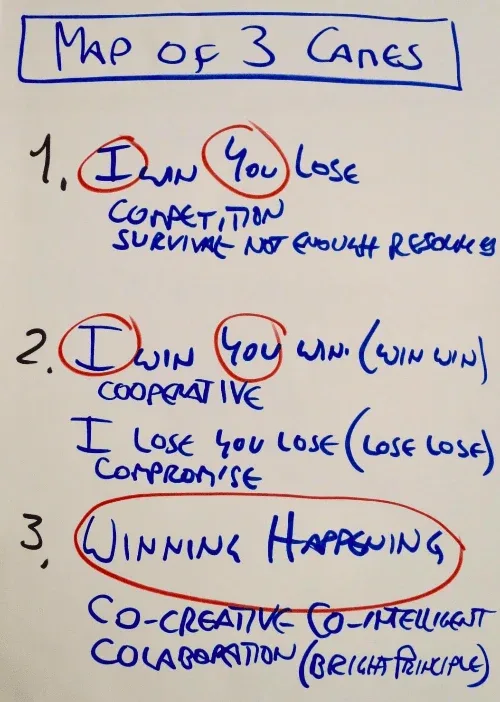 MAP OF 3 GAMES
1. I WIN YOU LOSE
COMPETITION
SURVIVAL NOT ENOUGH RESOURCES
2. I WIN YOU WIN. (WIN WIN)
COOPERATIVE
I LOSE YOU LOSE (LOSE LOSE)
COMPROMISE
3. WINNING HAPPENING
CO-CREATIVE CO-INTELLIGENT
COLABORATION (BRIGHT PRINCIPLE)